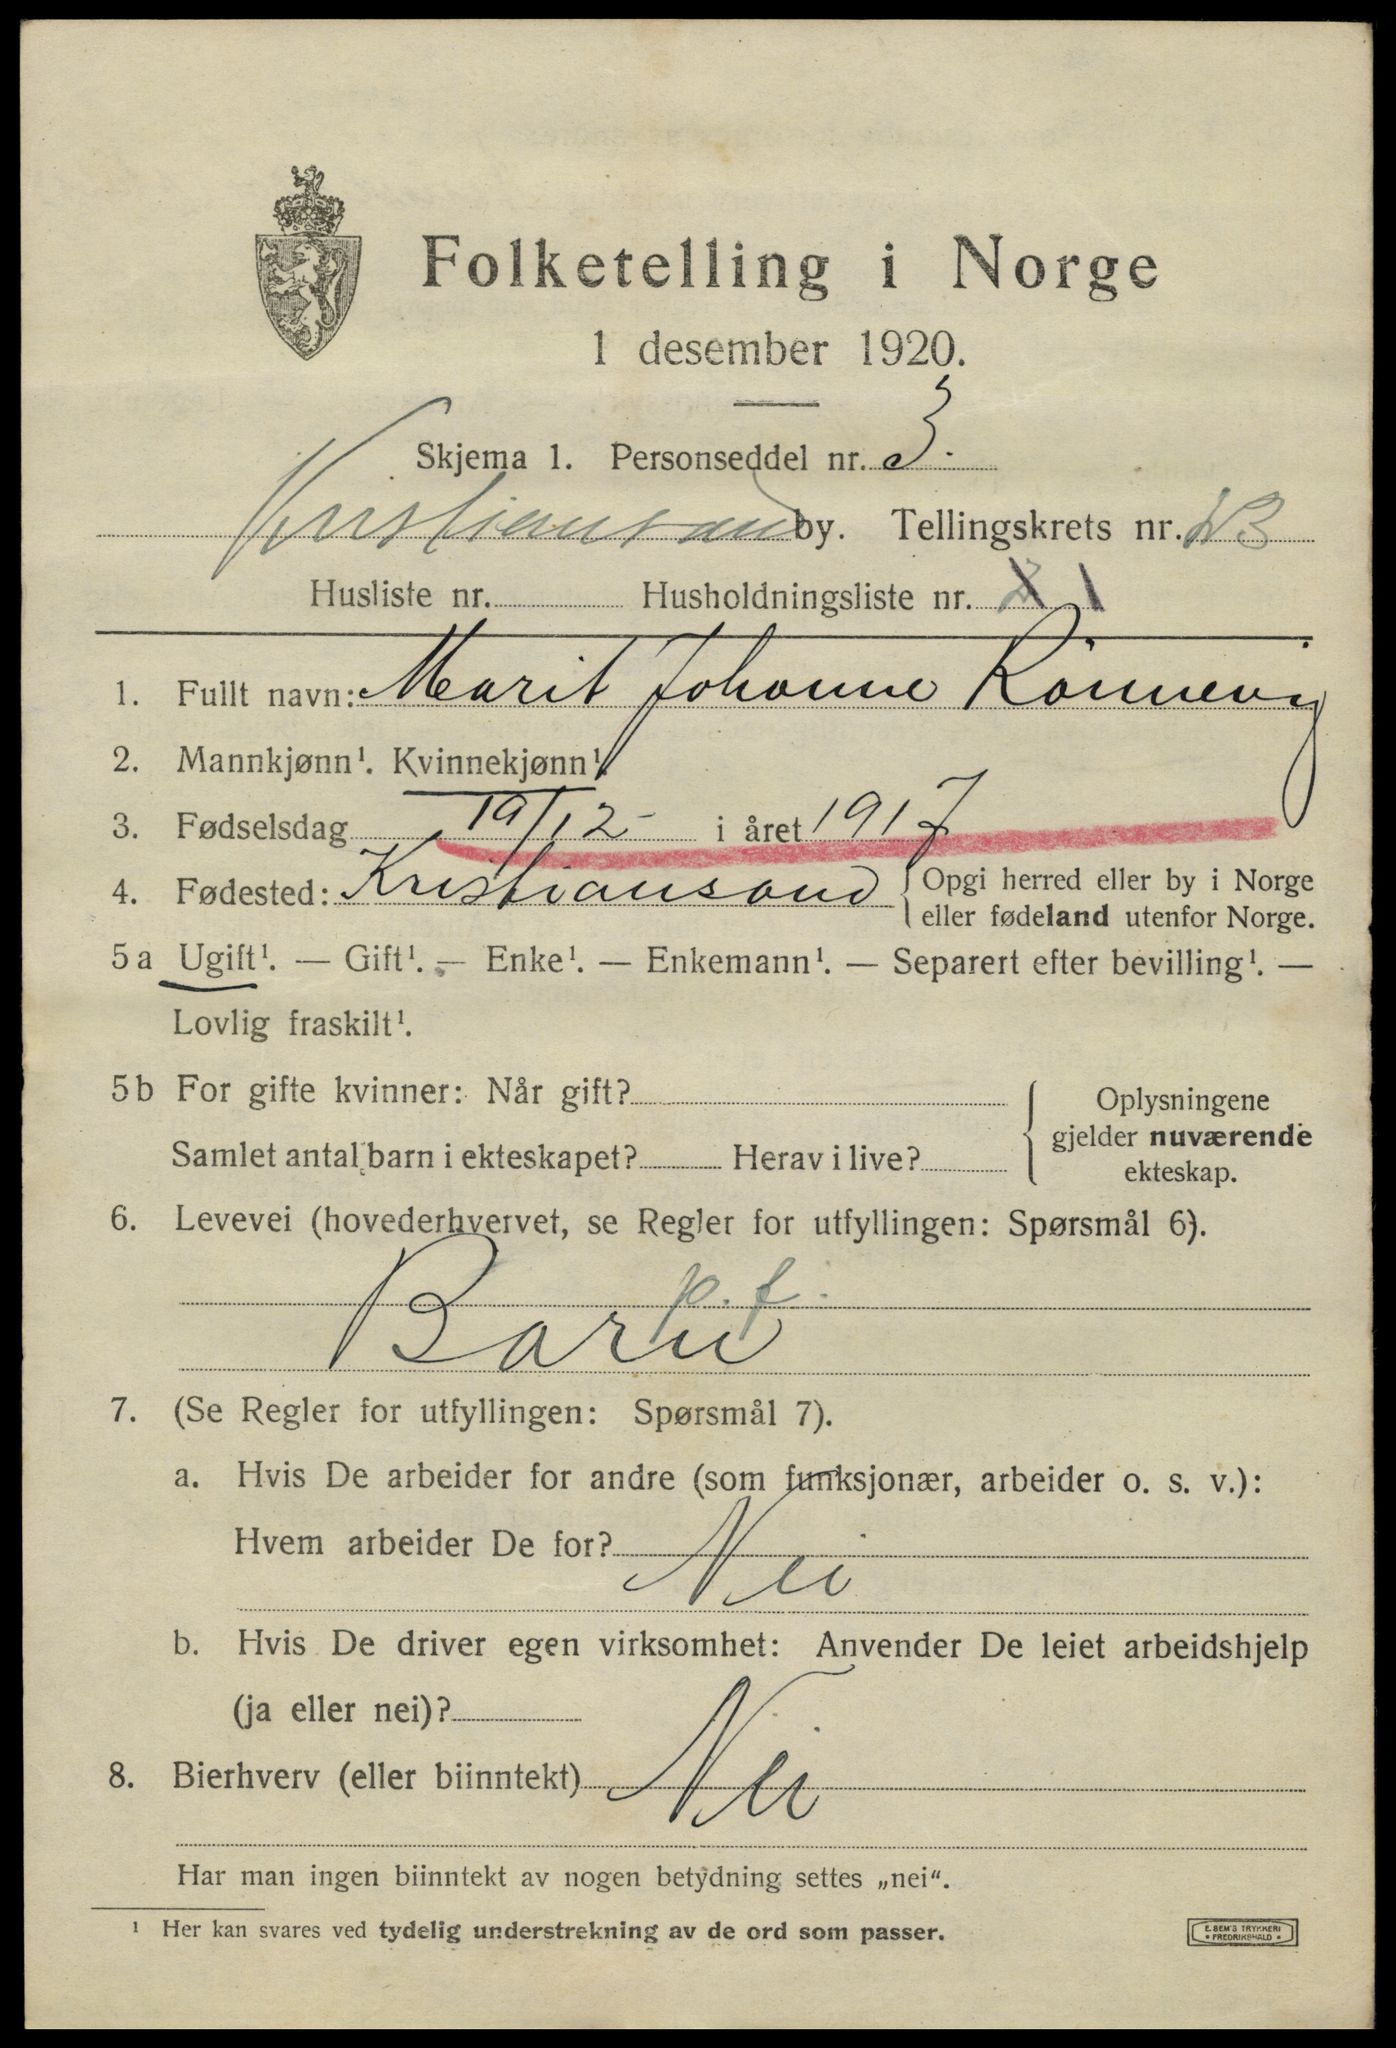 Folketelling i Norge
1 desember 1920.
Skjema 1. Personseddel nr. 3.
Kristiansand by. Tellingskrets nr.
Husliste nr. Husholdningsliste nr. 1
1. Fullt navn: Marit Johanne Rönnevig
2. Mannkjønn¹. Kvinnekjønn¹.
3. Fødselsdag 19/12 - i året 1917
4. Fødested: Kristiansand { Opgi herred eller by i Norge
eller fødeland utenfor Norge.
5 a Ugift¹. — Gift¹. — Enke¹. — Enkemann¹. — Separert efter bevilling¹. —
Lovlig fraskilt¹.
5 b For gifte kvinner: Når gift?
Samlet antal barn i ekteskapet? Herav i live?
Oplysningene
gjelder nuværende
ekteskap.
6. Levevei (hovederhvervet, se Regler for utfyllingen: Spørsmål 6).
p. f.
Barn
7. (Se Regler for utfyllingen: Spørsmål 7).
a. Hvis De arbeider for andre (som funksjonær, arbeider o. s. v.):
Hvem arbeider De for? Nei
b. Hvis De driver egen virksomhet: Anvender De leiet arbeidshjelp
(ja eller nei)?
8. Bierhverv (eller biinntekt) Nei
Har man ingen biinntekt av nogen betydning settes „nei“.
¹ Her kan svares ved tydelig understrekning av de ord som passer.
E. SEM'S TRYKKERI
• FREDRIKSHALD •